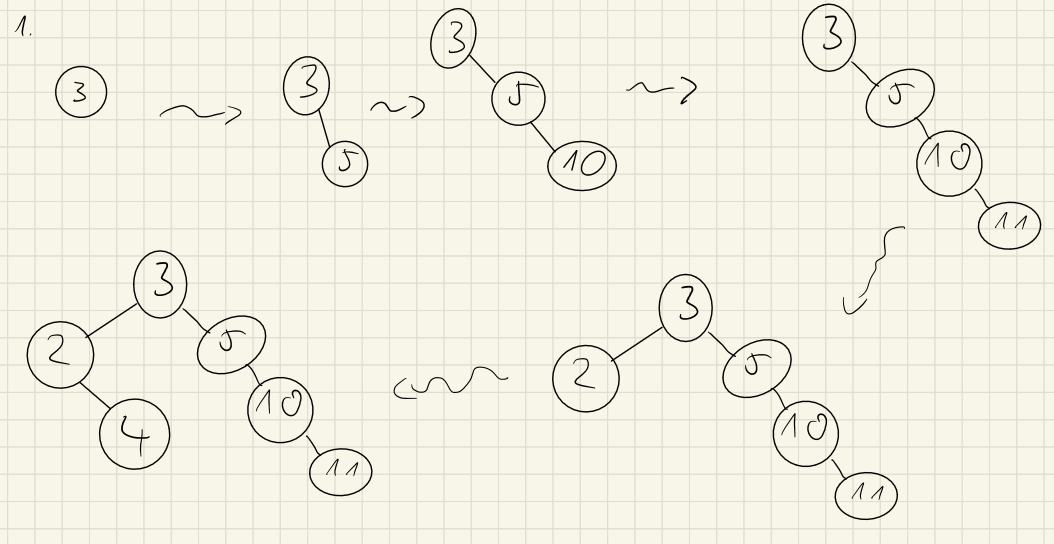 1.
3
3
5
3
5
10
3
5
10
11
3
2
5
10
11
3
2
5
4
10
11